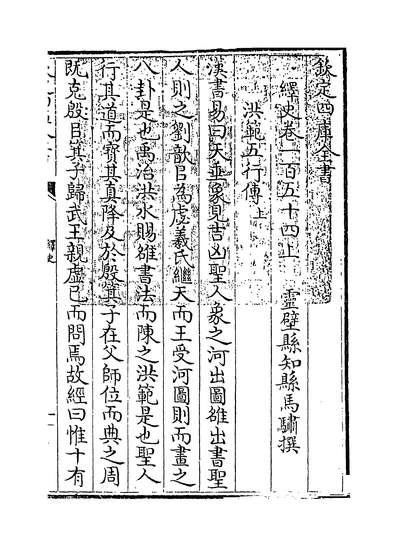 欽定四庫全書
繹史卷一百五十四上 靈壁縣知縣馬驌撰
洪範五行傳上
漢書易曰天垂象見吉凶聖人象之河出圖雒出書聖
人則之劉歆㠯為虙羲氏繼天而王受河圖則而畫之
八卦是也禹治洪水賜雒書法而陳之洪範是也聖人
行其道而寳其真降及於殷箕子在父師位而典之周
既克殷㠯箕子歸武王親虛己而問焉故經曰惟十有
繹史
一